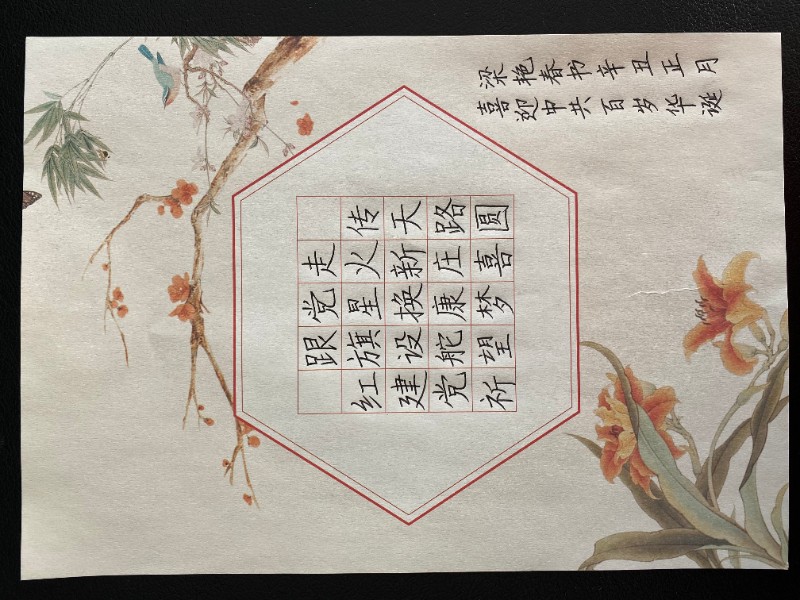 跟党走
红旗星火传
建设换新天
党舵康庄路
祈望梦喜圆
喜迎中共百岁华诞
梁艳春书辛丑正月